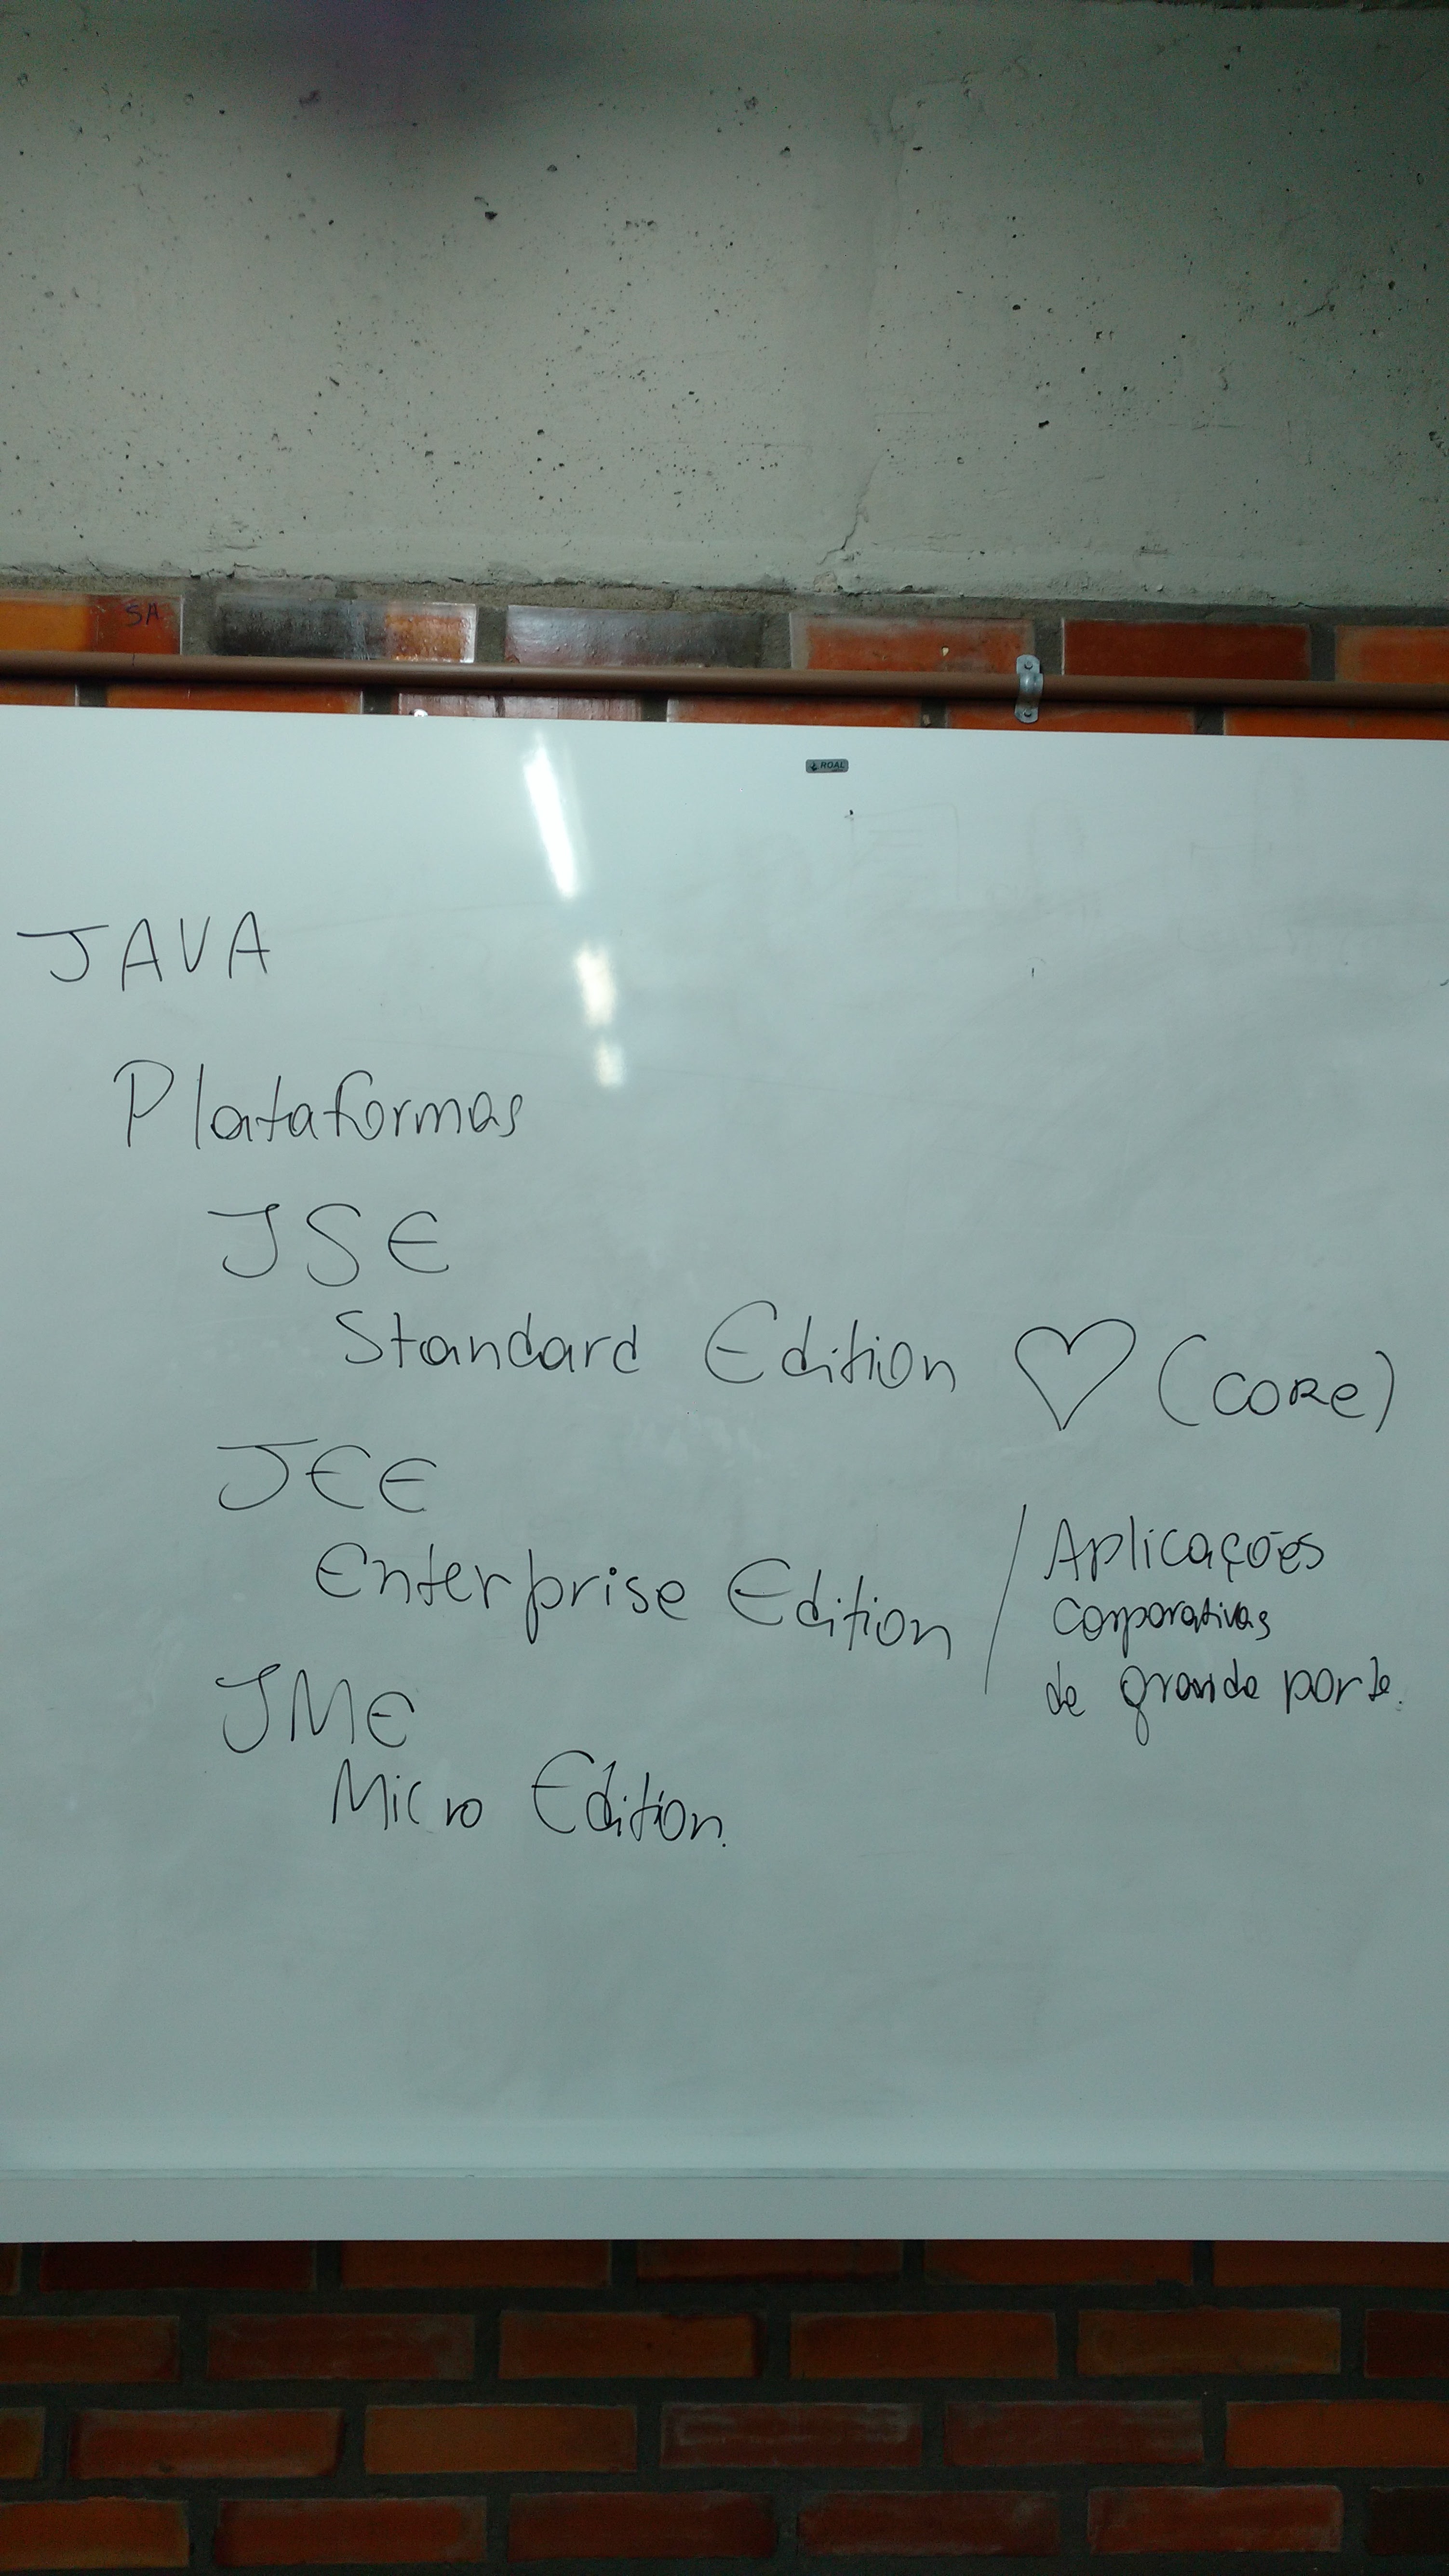 SA
ROAL
JAVA
Plataformas
JSE
Standard Edition ♡ (CORe)
JEE
Enterprise Edition / Aplicações
corporativas
de grande porte.
JME
Micro Edition.